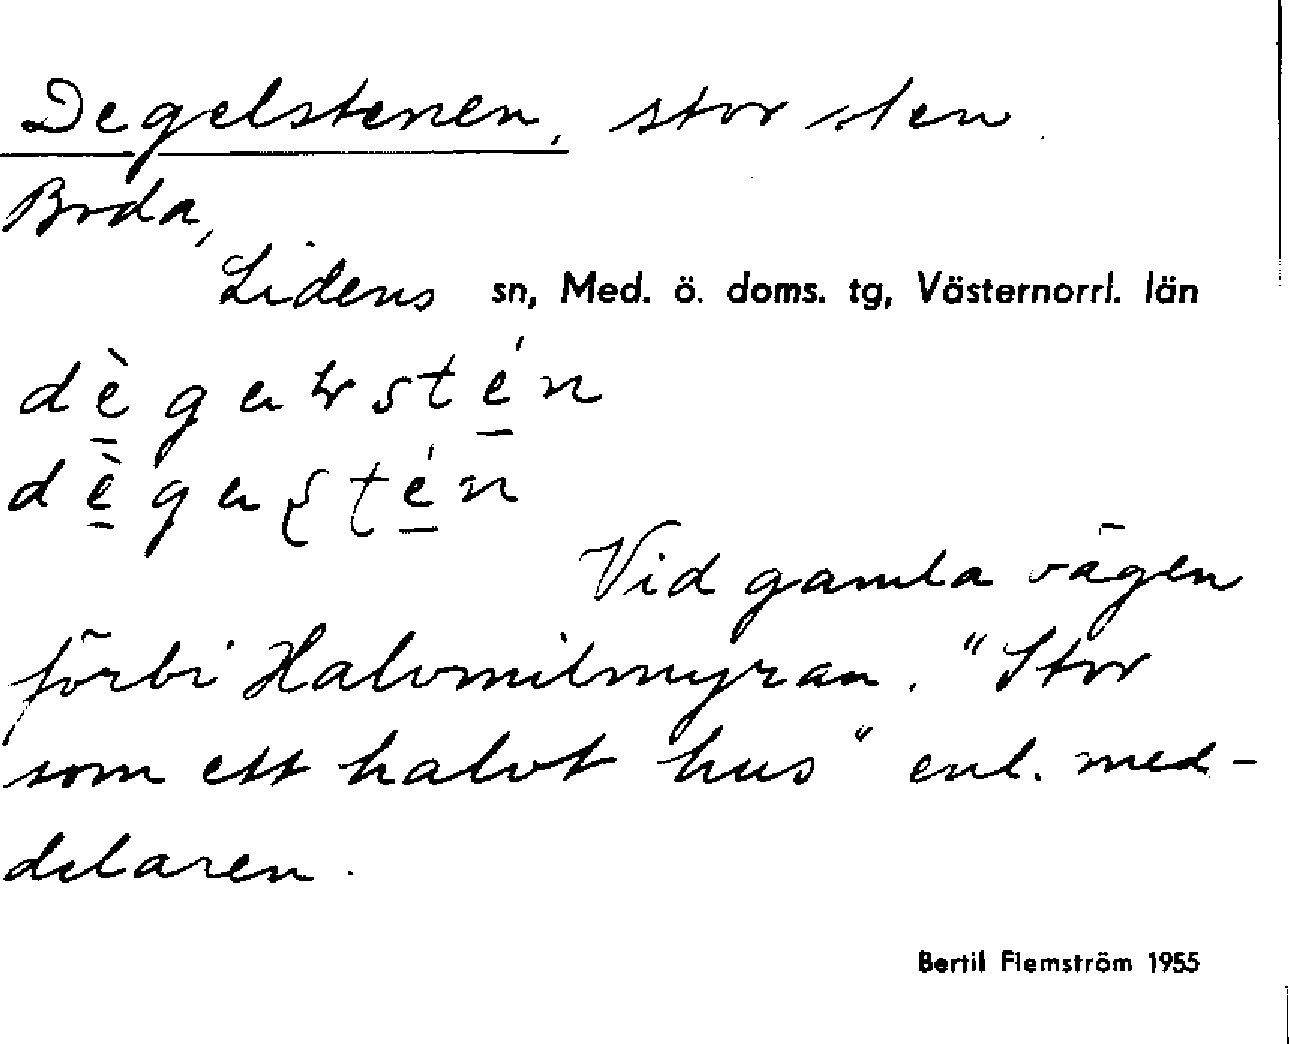 Degelstenen, stor sten.
Boda,
Lidens sn, Med. ö. doms. tg, Västernorrl. län
Vid gamla vägen
förbi Halvmilmyran. "Stor
som ett halvt hus" enl. med-
delaren.
Bertil Flemström 1955